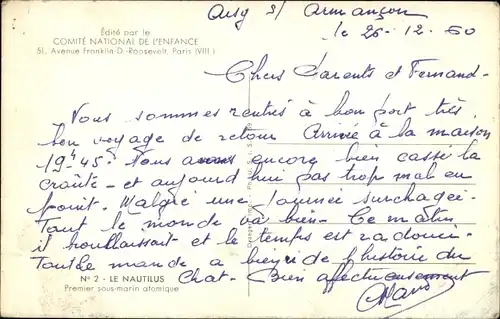 Édité par le
COMITÉ NATIONAL DE L'ENFANCE
51, Avenue Franklin-D.-Roosevelt, Paris (VIII)
s/ Armançon
le 26-12-60
Chers Parents et Fernand-
Nous sommes rentrés à bon port très
bon voyage de retour Arrivée à la maison
19h45. Nous avons encore bien cassé la
croûte - et aujourd hui pas trop mal en
point. Malgré une journée surchagée.
Tout le monde va bien - Ce matin
il brouillassait et le temps est radouci.
Tout le monde a l'histoire du
Chat - Bien affectueusement
N° 2 - LE NAUTILUS
Premier sous-marin atomique